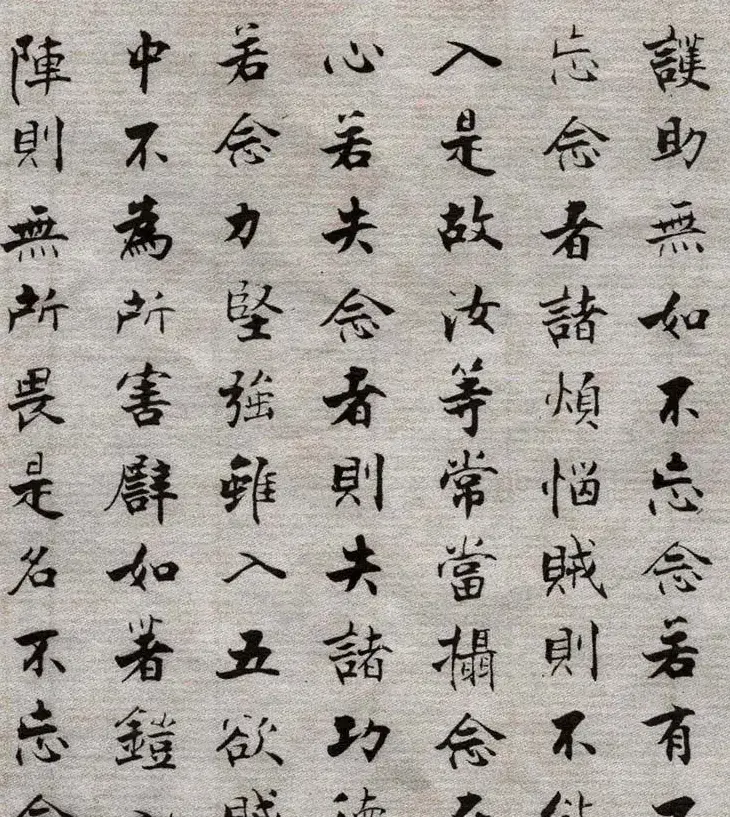 護助無如不忘念若有
忘念者諸煩惱賊則不
入是故汝等常當攝念
心若失念者則失諸功
若念力堅強雖入五欲
中不為所害譬如著鎧
陣則無所畏是名不忘